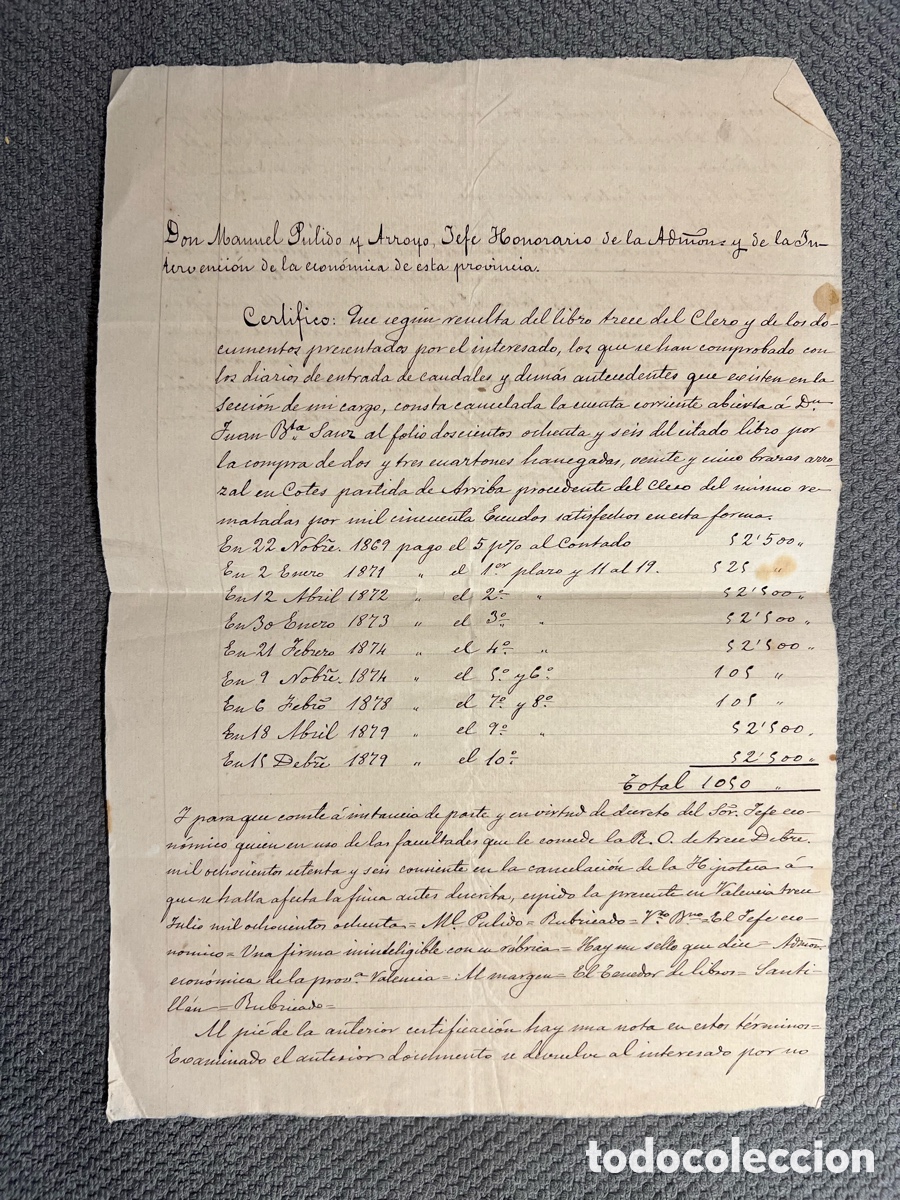 Don Manuel Pulido y Arroyo, Jefe Honorario de la Admōn y de la In-
tervención de la económica de esta provincia.
Certifico: Que según resulta del libro trece del Clero y de los do-
cumentos presentados por el interesado, los que se han comprobado con
los diarios de entrada de caudales y demás antecedentes que existen en la
sección de mi cargo, consta cancelada la cuenta corriente abierta á Dn
Juan Bta Sanz al folio doscientos ochenta y seis del citado libro por
la compra de dos y tres cuartones hanegadas, veinte y cinco brazas arro-
zal en Cotes partida de Arriba procedente del Clero del mismo re-
matadas por mil cincuenta Escudos satisfechos en esta forma.
En 22 Nobre. 1869 pago el 5 p% al Contado 52'500 "
En 2 Enero 1871 " el 1er plazo y 11 al 19. 525 "
En 12 Abril 1872 " el 2o " 52'500 "
En 30 Enero 1873 " el 3o " 52'500 "
En 21 Febrero 1874 " el 4o " 52'500 "
En 9 Nobre. 1874 " el 5o y 6o 105 "
En 6 Febro 1878 " el 7o y 8o 105 "
En 18 Abril 1879 " el 9o " 52'500 "
En 15 Debre 1879 " el 10o 52'500 "
Total 1050 "
Y para que conste á instancia de parte y en virtud de decreto del Sor. Jefe eco-
nómico quien en uso de las facultades que le concede la R. O. de trece Debre.
mil ochocientos setenta y seis consiente en la cancelación de la Hipoteca á
que se halla afecta la finca antes descrita, espido la presente en Valencia trece
Julio mil ochocientos ochenta = Ml. Pulido = Rubricado = Vto Bno = El Jefe eco-
nómico = Una firma ininteligible con su rúbrica = Hay un sello que dice = Admōn
económica de la prova Valencia = Al margen = El Tenedor de libros = Santi-
llán = Rubricado =
Al pié de la anterior certificación hay una nota en estos términos =
Examinado el anterior documento se devuelve al interesado por no
todocoleccion